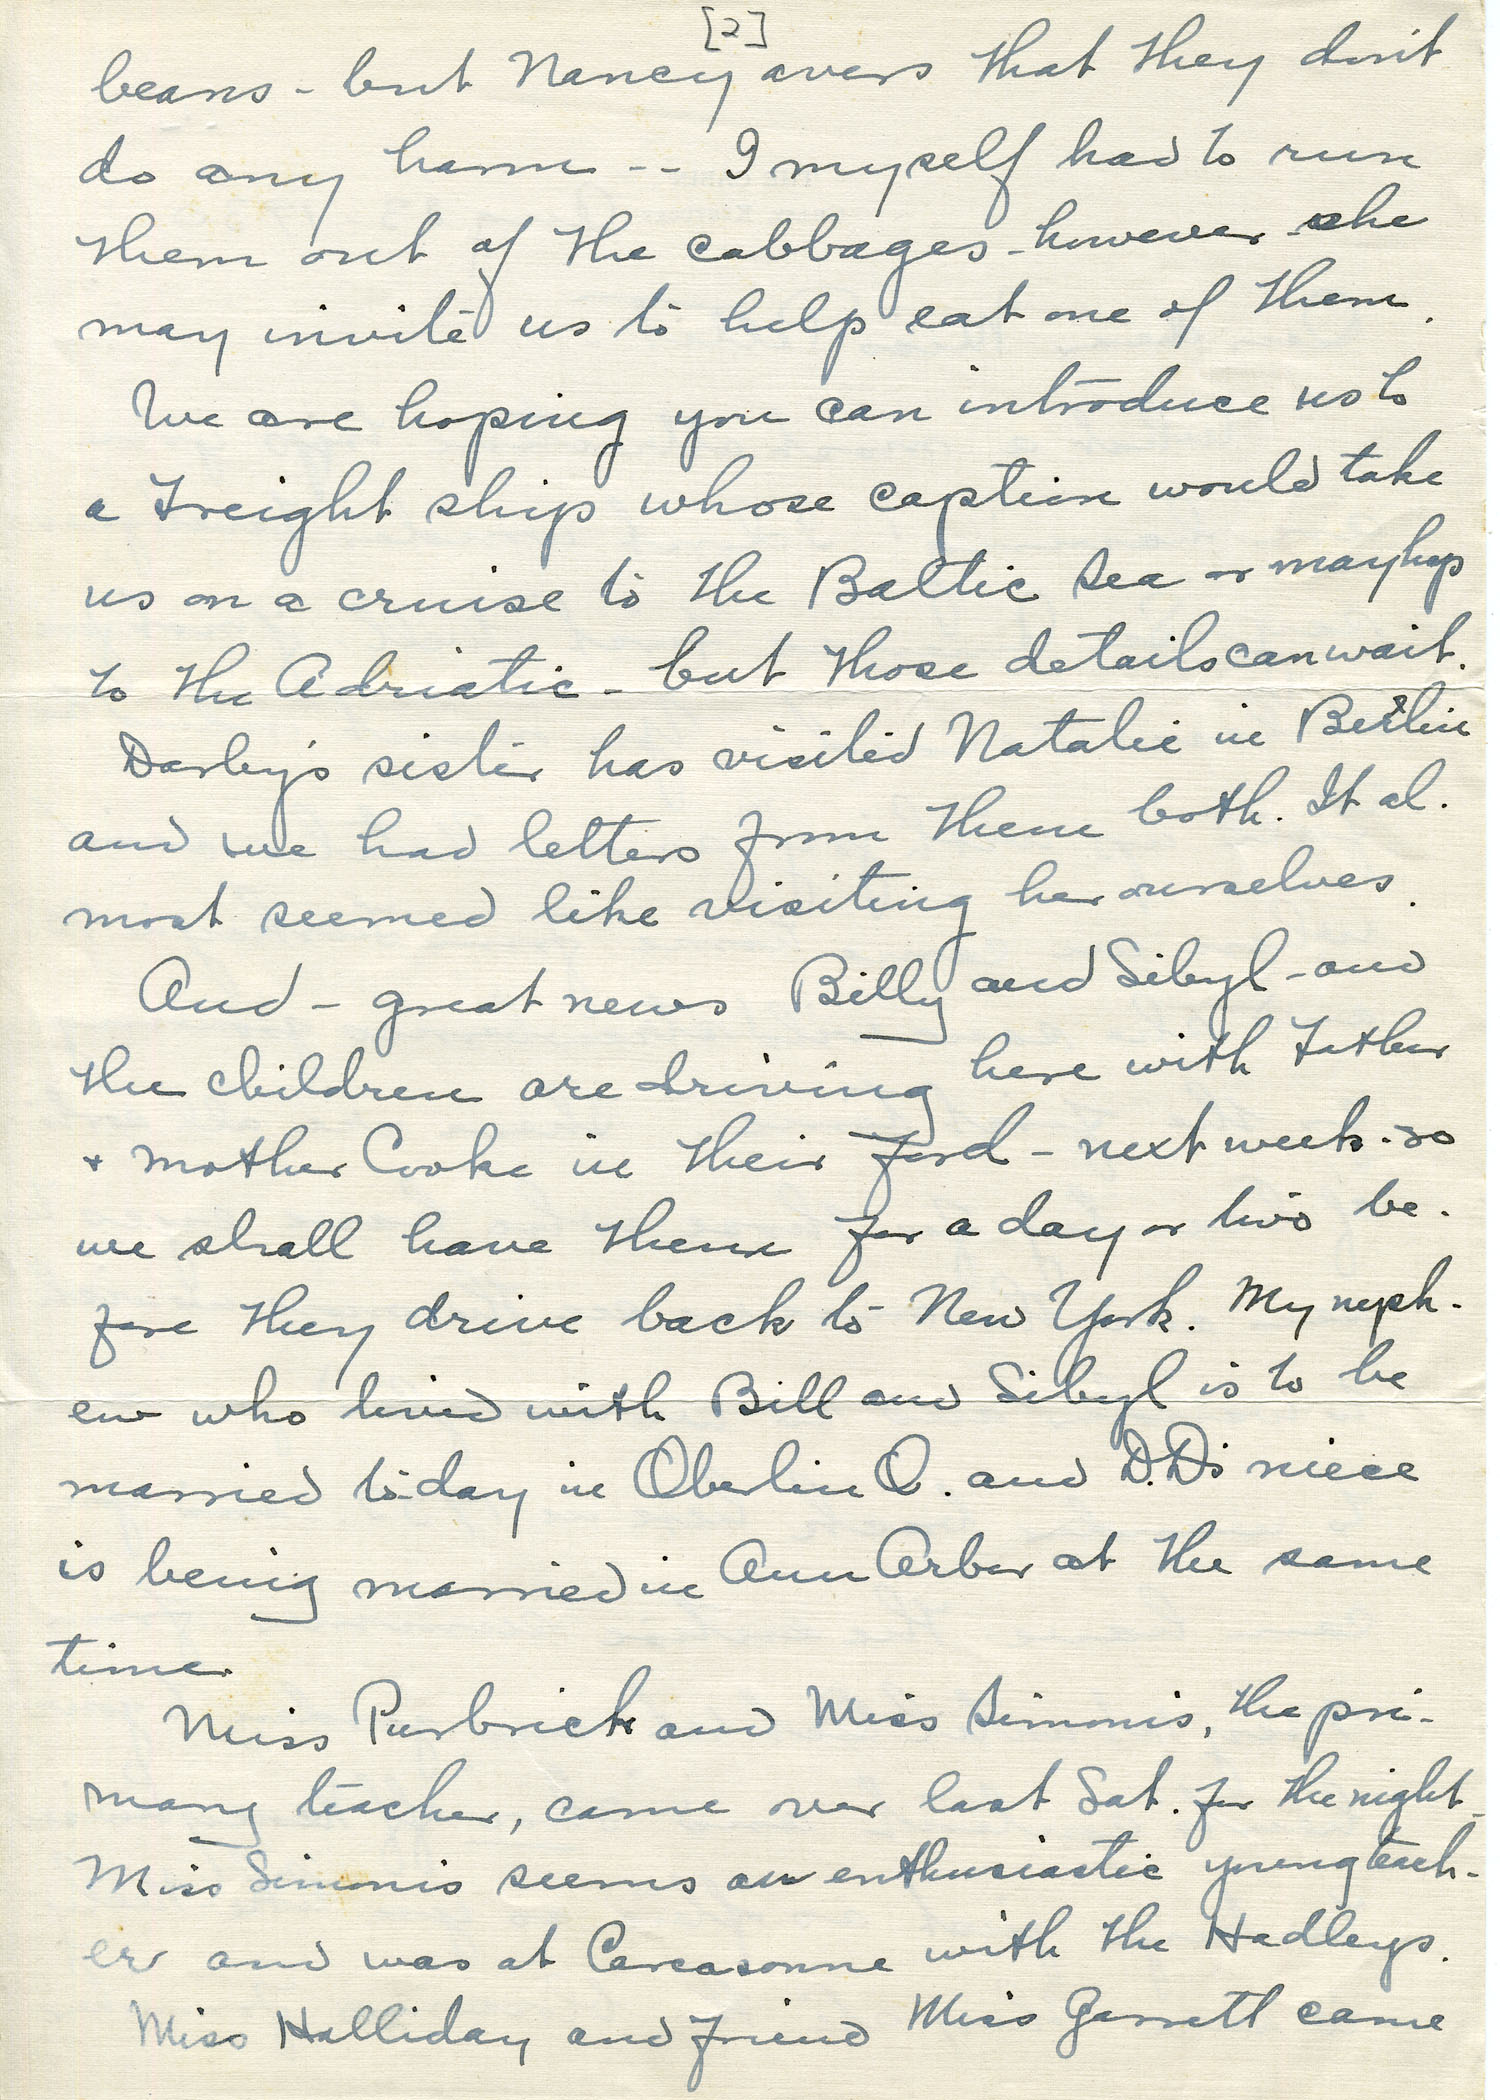 [2]
beans - but Nancy avers that they don't
do any harm -- I myself had to run
them out of the cabbages - however she
may invite us to help eat one of them.
We are hoping you can introduce us to
a freight ship whose captain would take
us on a cruise to the Baltic Sea or mayhap
to the Adriatic - but those details can wait.
Darby's sister has visited Natalie in Berlin
and we had letters from them both. It al-
most seemed like visiting her ourselves.
And - great news Billy and Sibyl - and
the children are driving here with Father
+ mother Cooke in their Ford - next week - so
we shall have them for a day or two be-
fore they drive back to New York. My neph-
ew who lived with Bill and Sibyl is to be
married to-day in Oberlin O. and D.D's niece
is being married in Ann Arbor at the same
time.
Miss Purbrick and Miss Simonis, the pri-
mary teacher, came over last Sat. for the night -
Miss Simonis seems an enthusiastic young teach-
er and was at Carcasonne with the Hadleys.
Miss Halliday and friend Miss Garrett came